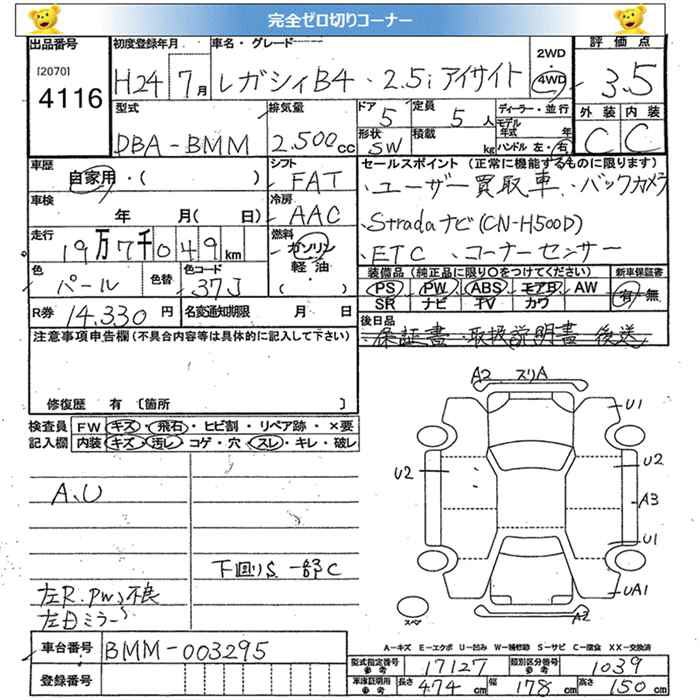 完全ゼロ切りコーナー
出品番号 初度登録年月 車名・グレード 2WD 評価点
[2070] 4116 H24年7月 レガシィB4・2.5iアイサイト 4WD 3.5
型式 排気量 ドア 5 定員 5人 ディーラー・並行 外装 内装
モデル年式 年
DBA-BMM 2.500cc 形状 SW 積載 kg ハンドル 左・右 C C
車歴 シフト セールスポイント(正常に機能するものに限ります)
自家用・( ) FAT ・ユーザー買取車、バックカメラ
車検 冷房
年 月( 日) AAC ・Stradaナビ(CN-H500D)
走行 燃料
19万7千049km ガソリン ・ETC、コーナーセンサー
軽油
色 色替 色コード 装備品(純正品に限り○をつけてください) 新車保証書
パール 37J PS PW ABS エアB AW 有・無
・( ) SR ナビ TV カワ
R券 14.330円 名変通知期限 月 日 後日品
注意事項申告欄(不具合内容等は具体的に記入して下さい) ・保証書・取扱説明書 後送
修復歴 有 〔箇所 〕
検査員 FW キズ・飛石・ヒビ割・リペア跡・×要
記入欄 内装 キズ・汚レ・コゲ・穴・スレ・キレ・破レ
A2 スリA
U1
U2 U2
A3
U1
UA1
A2
スペア
A、U
下回りS 一部C
左R.PWS不良
左Dミラー〃
A-キズ E-エクボ U-凹み W-補修跡 S-サビ C-腐食 XX-交換済
車台番号 BMM-003295
型式指定番号 参考 17127 類別区分番号 参考 1039
登録番号
車庫証明用 参考 長さ 474cm 幅 178cm 高さ 150cm